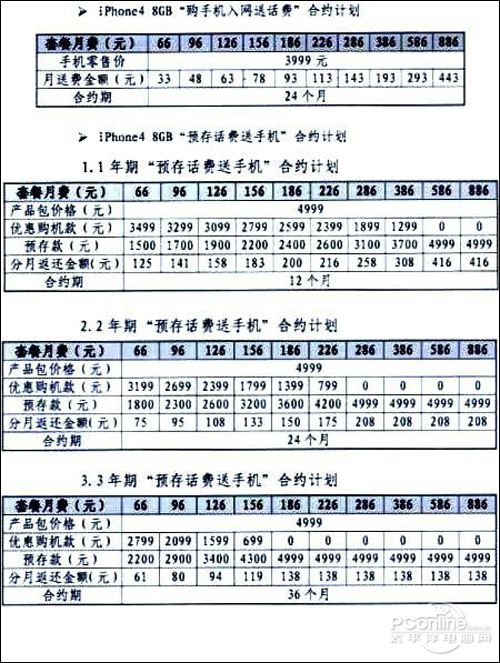 ➤ iPhone4 8GB“购手机入网送话费”合约计划
套餐月费（元） 66 96 126 156 186 226 286 386 586 886
手机零售价 3999 元
月送费金额（元） 33 48 63 78 93 113 143 193 293 443
合约期 24 个月
➤ iPhone4 8GB“预存话费送手机”合约计划
1.1 年期“预存话费送手机”合约计划
套餐月费（元） 66 96 126 156 186 226 286 386 586 886
产品包价格（元） 4999
优惠购机款（元） 3499 3299 3099 2799 2599 2399 1899 1299 0 0
预存款（元） 1500 1700 1900 2200 2400 2600 3100 3700 4999 4999
分月返还金额(元) 125 141 158 183 200 216 258 308 416 416
合约期 12 个月
2.2 年期“预存话费送手机”合约计划
套餐月费（元） 66 96 126 156 186 226 286 386 586 886
产品包价格（元） 4999
优惠购机款（元） 3199 2699 2399 1799 1399 799 0 0 0 0
预存款（元） 1800 2300 2600 3200 3600 4200 4999 4999 4999 4999
分月返还金额(元) 75 95 108 133 150 175 208 208 208 208
合约期 24 个月
3.3 年期“预存话费送手机”合约计划
套餐月费（元） 66 96 126 156 186 226 286 386 586 886
产品包价格（元） 4999
优惠购机款（元） 2799 2099 1599 699 0 0 0 0 0 0
预存款（元） 2200 2900 3400 4300 4999 4999 4999 4999 4999 4999
分月返还金额(元) 61 80 94 119 138 138 138 138 138 138
合约期 36 个月
PConline
太平洋电脑网